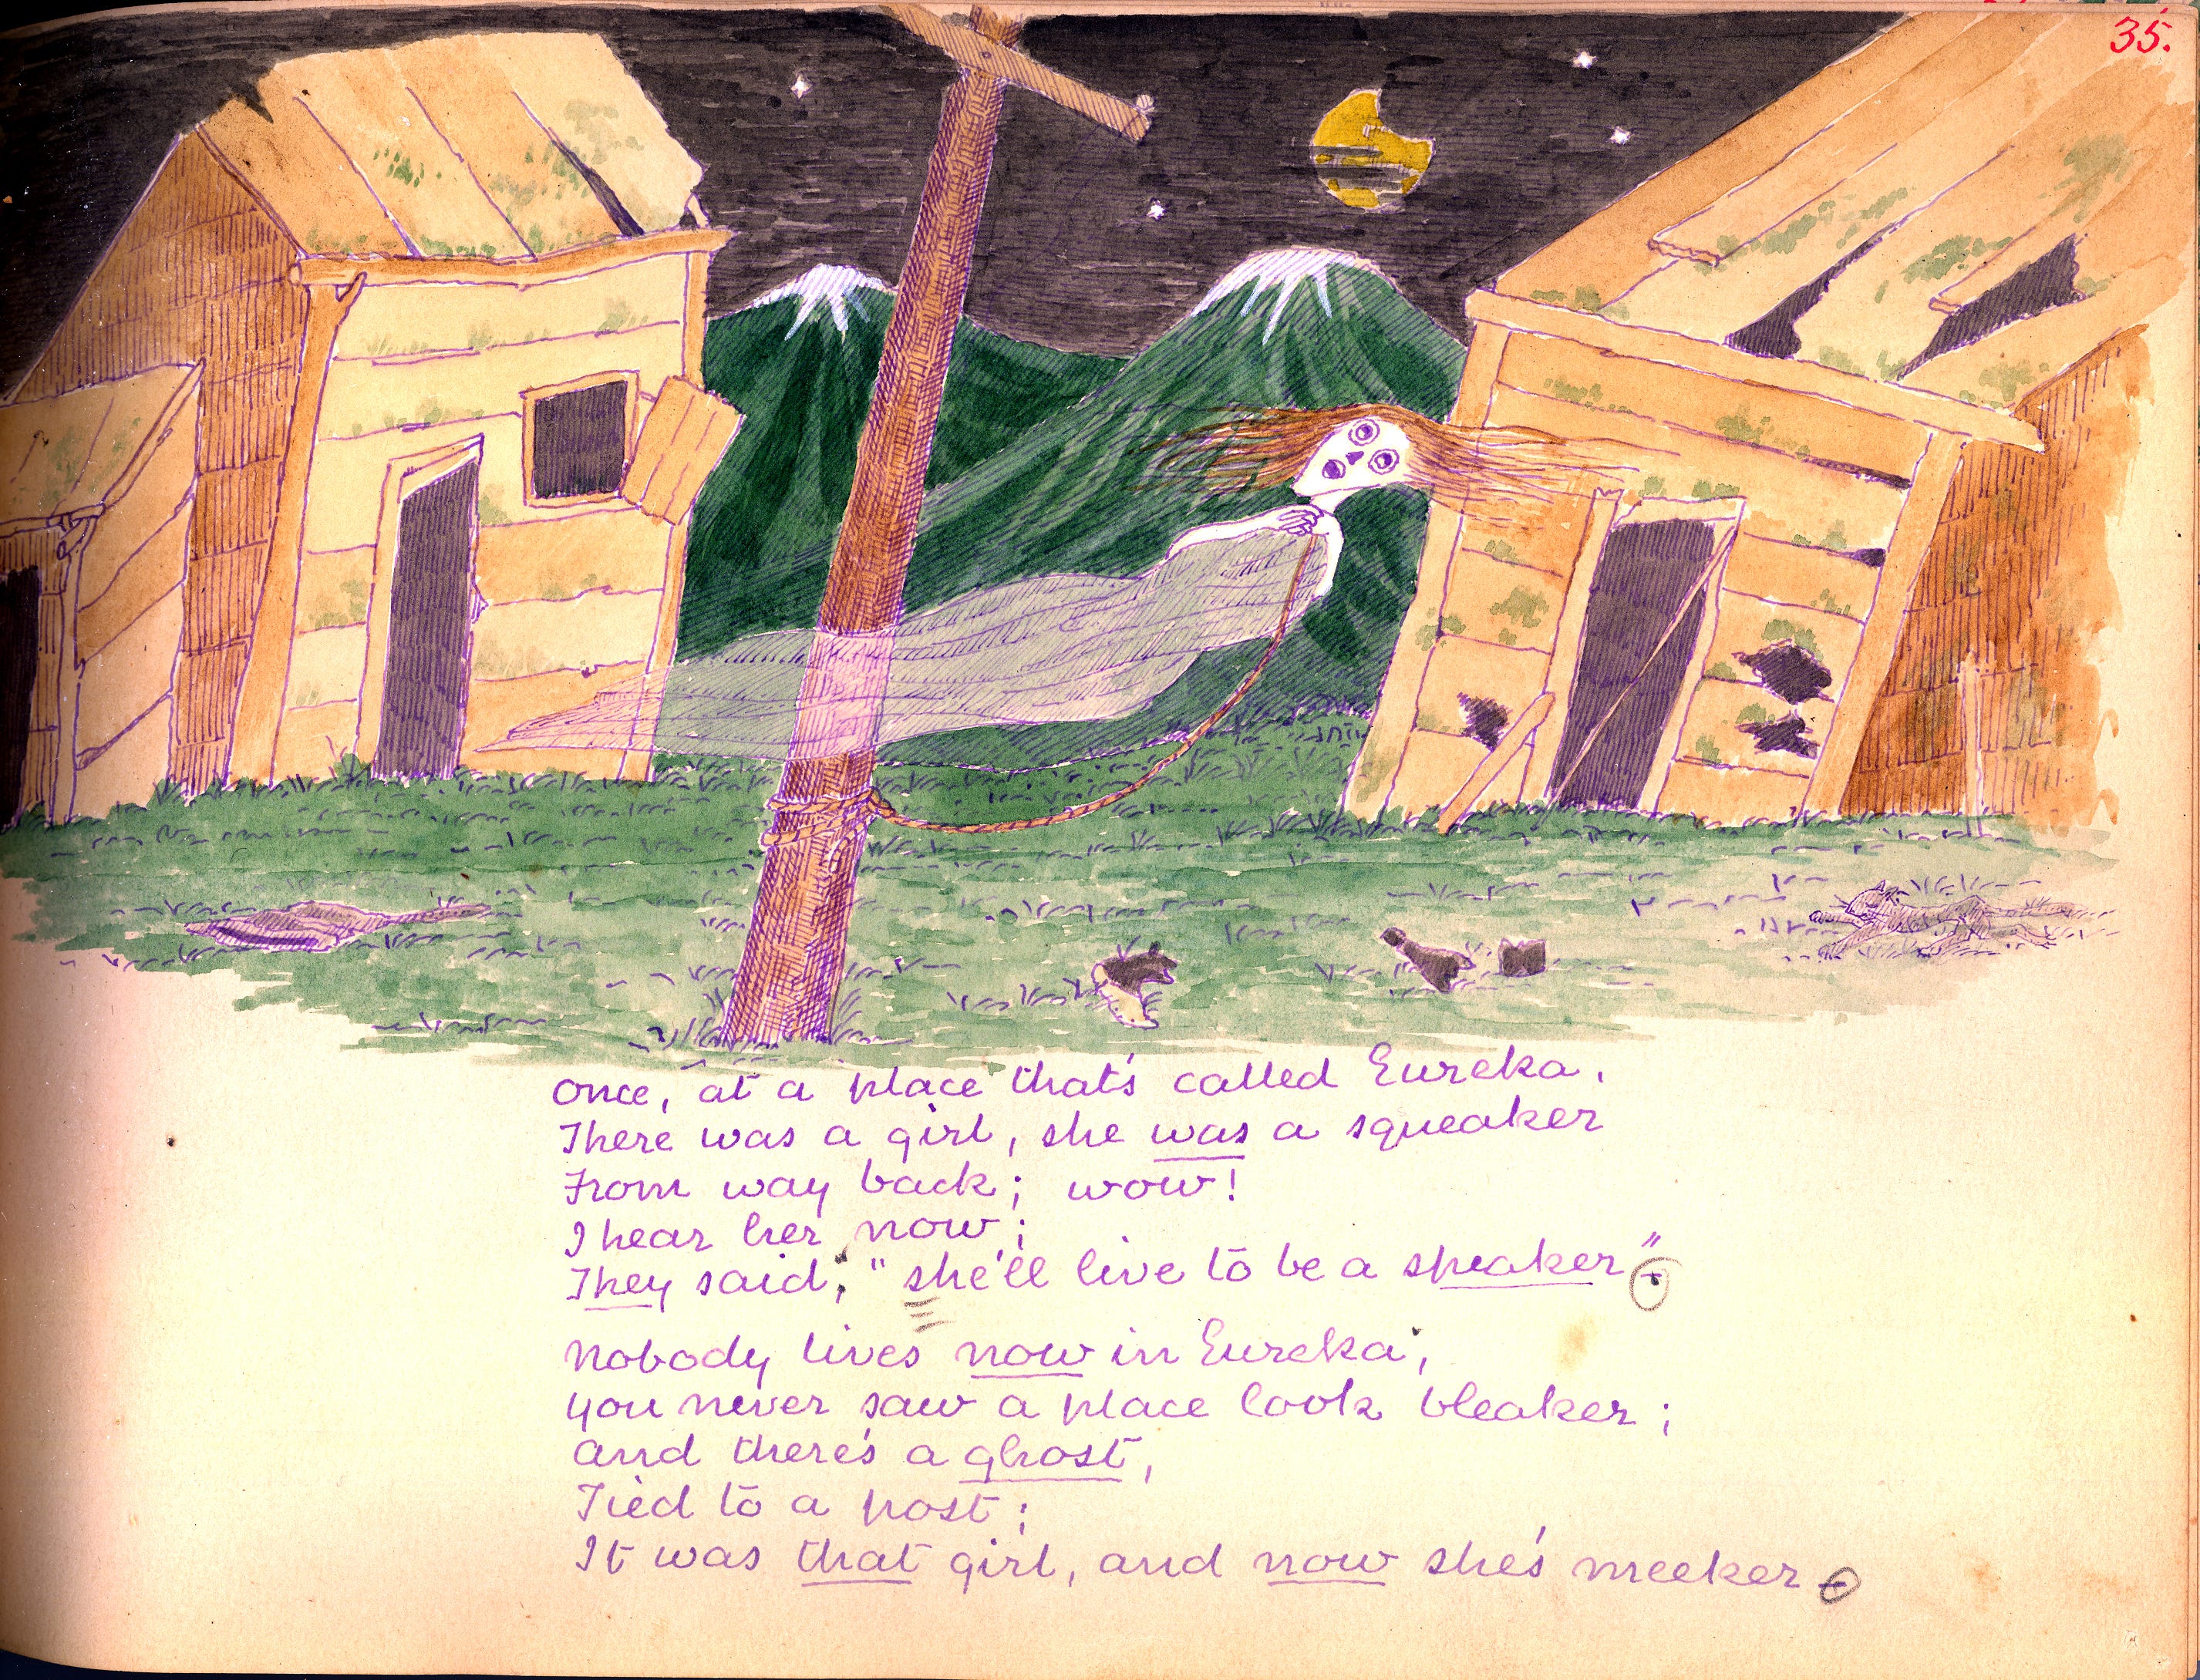 35.
Once, at a place that's called Eureka,
There was a girl, she was a squeaker
From way back; wow!
I hear her now;
They said; "she'll live to be a speaker".
Nobody lives now in Eureka;
you never saw a place look bleaker;
and there's a ghost,
Tied to a post;
It was that girl, and now she's meeker.